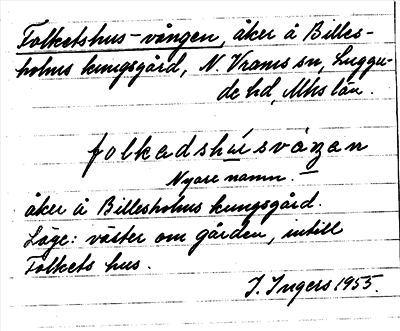 Folketshus-vången, åker å Billes-
holms kungsgård, N. Vrams sn, Luggu-
de hd, Mhs län.
folkadshúsváŋan
Nyare namn. —
åker å Billesholms kungsgård.
Läge: väster om gården, intill
Folkets hus.
I. Ingers 1955.